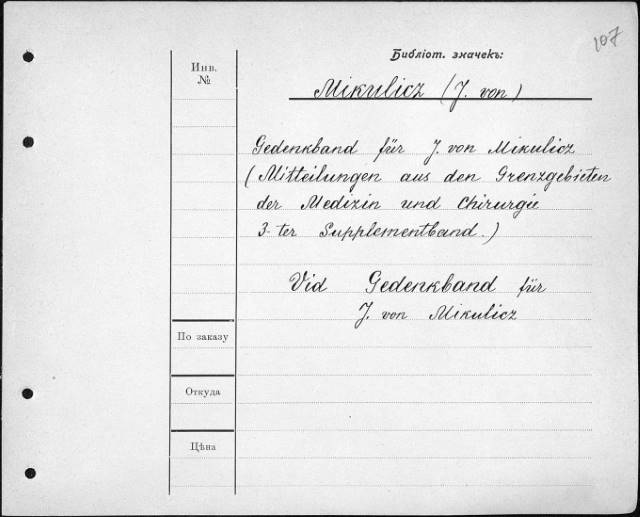 107
Библіот. значекъ:
Инв.
№
Mikulicz (J. von)
Gedenkband für J. von Mikulicz
(Mitteilungen aus den Grenzgebieten
der Medizin und Chirurgie
3-ter Supplementband.)
Vid Gedenkband für
J. von Mikulicz
По заказу
Откуда
Цѣна